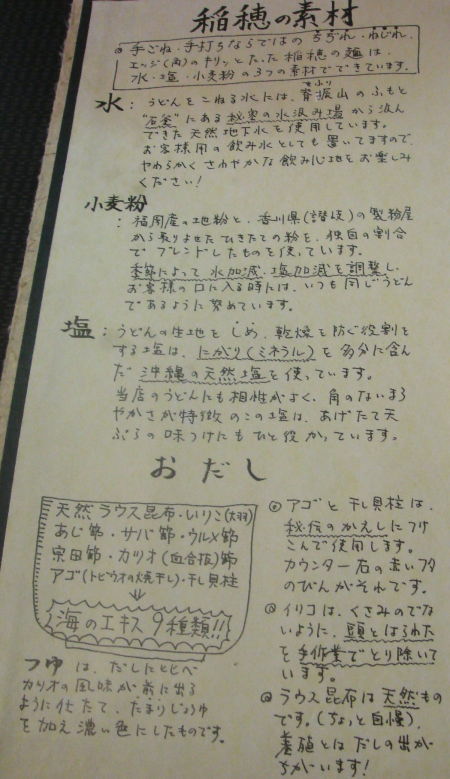 稲穂の素材
◎手ごね・手打ちならではのちぢれ・ねじれ、
エッジ(角)のキリッとたった稲穂の麺は、
水・塩・小麦粉の3つの素材でできています。
水:うどんをこねる水には、脊振山のふもと
"石釜"にある秘密の水汲み場から汲ん
できた天然地下水を使用しています。
お客様用の飲み水としても置いてますので、
やわらかくさわやかな飲み心地をお楽しみ
ください!
小麦粉
:福岡産の地粉と、香川県(讃岐)の製粉屋
から取りよせたひきたての粉を、独自の割合
でブレンドしたものを使っています。
季節によって水加減・塩加減を調整し、
お客様の口に入る時には、いつも同じうどん
であるように努めています。
塩:うどんの生地をしめ、乾燥を防ぐ役割を
する塩は、にがり(ミネラル)を多分に含ん
だ沖縄の天然塩を使っています。
当店のうどんにも相性がよく、角のないまろ
やかさが特徴のこの塩は、あげたて天
ぷらの味つけにもひと役かっています。
おだし
天然ラウス昆布・いりこ(大羽)
あじ節・サバ節・ウルメ節
宗田節・カツオ(血合抜)節
アゴ(トビウオの焼干し)・干し貝柱
⇓
海のエキス9種類!!
つゆは、だしにくらべ
カツオの風味が前に出る
ように仕たて、たまりじょうゆ
を加え濃い色にしたものです。
◎アゴと干し貝柱は、
秘伝のかえしにつけ
こんで使用します。
カウンター右の赤いフタ
のびんがそれです。
◎イリコは、くさみのでな
いように、頭とはらわた
を手作業でとり除いて
います。
◎ラウス昆布は天然もの
です。(ちょっと自慢)、
養殖とはだしの出が
ちがいます!